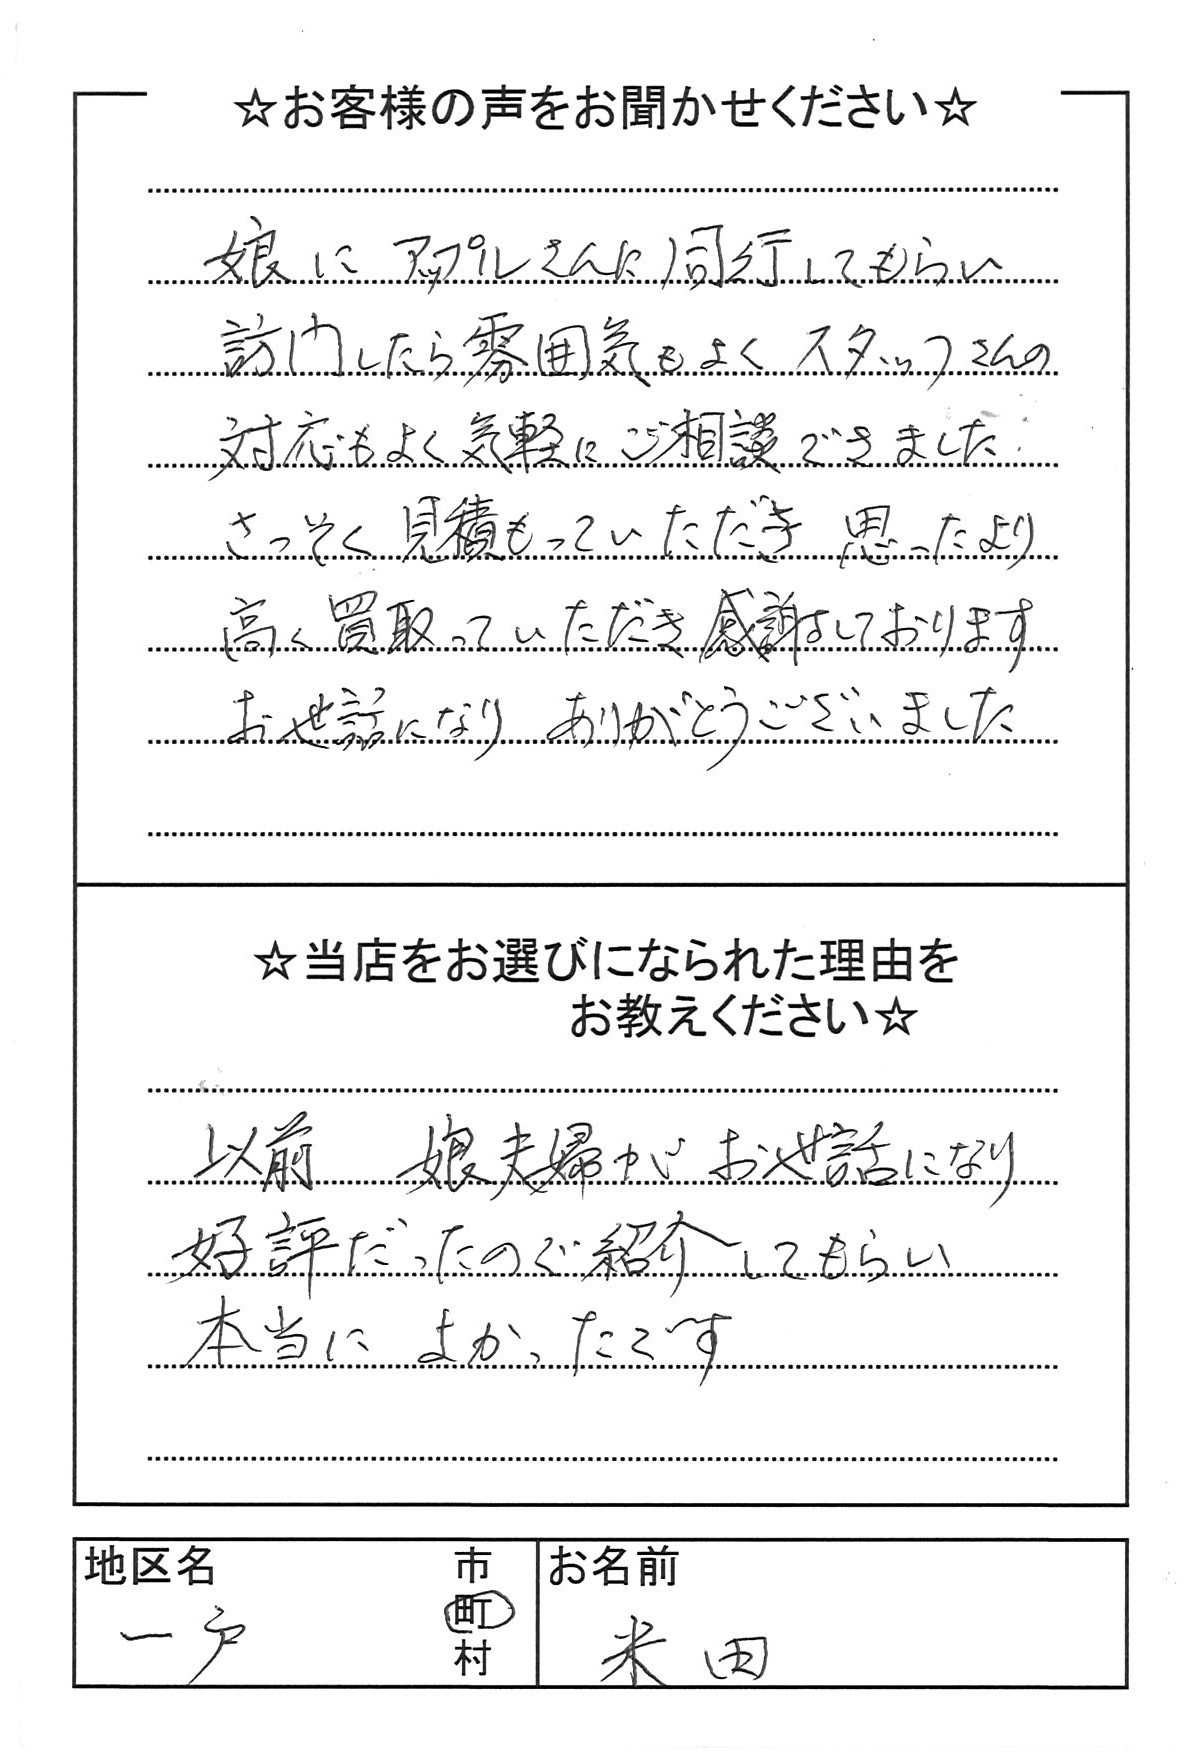 ☆お客様の声をお聞かせください☆
娘に アップルさんに同行してもらい
訪門したら雰囲気もよく スタッフさんの
対応もよく気軽にご相談できました
さっそく見積もっていただき 思ったより
高く買取っていただき感謝しております
お世話になり ありがとうございました
☆当店をお選びになられた理由を
お教えください☆
以前 娘夫婦が お世話になり
好評だったので紹介してもらい
本当に よかったです
地区名
一戸
市
町
村
お名前
米田